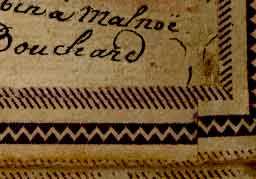 bin à Malnoë
Bouchard